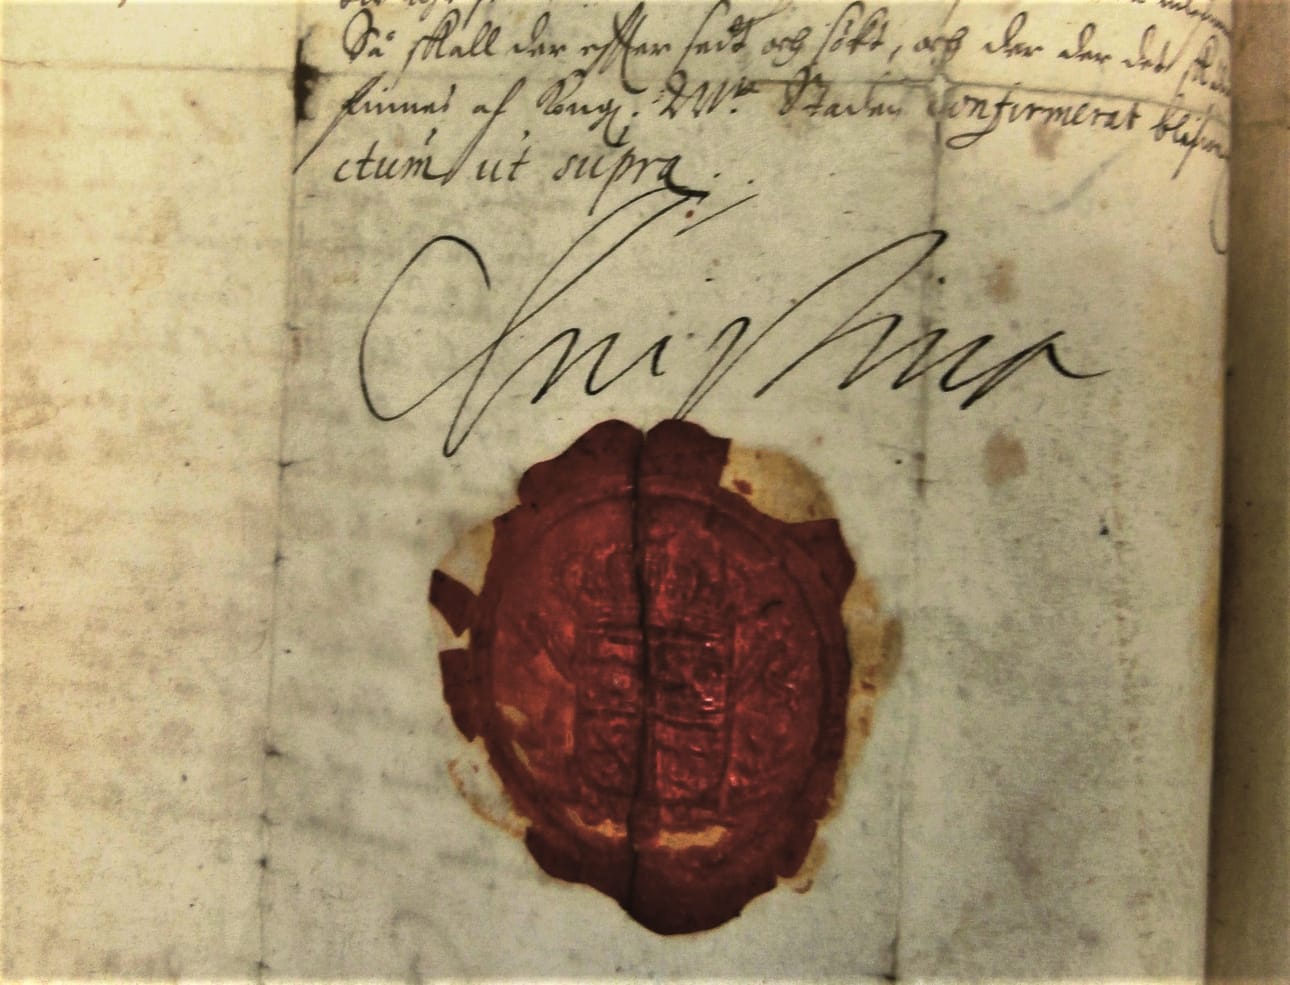 Så skall der effter sedt och sökt, och der der det så
finnes af Kong. Mtt. Staden confirmerat blifwe
ctum ut supra.
Christina